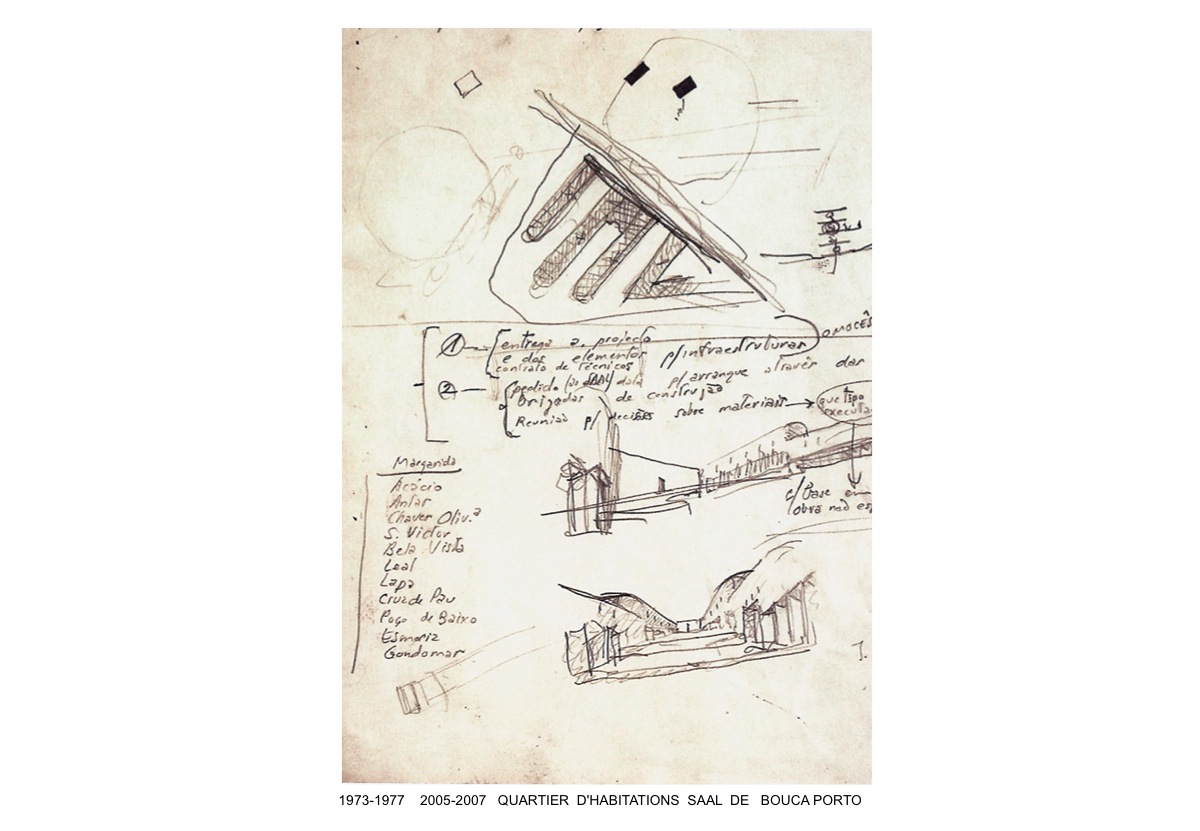 ① entrega a. projecto
e dos elementos p/infraestruturas
contrato de técnicos
② pedido (ao SAAL) para p/arranque através das
Brigadas de construção
Reunião p/ decisões sobre materiais → que tipo
executa
c/base em
obra não es
Margarida
Acácio
Antas
Chaves Oliv.ª
S. Victor
Bela Vista
Leal
Lapa
Cruz de Pau
Poço de Baixo
Esmoriz
Gondomar
1973-1977 2005-2007 QUARTIER D'HABITATIONS SAAL DE BOUCA PORTO